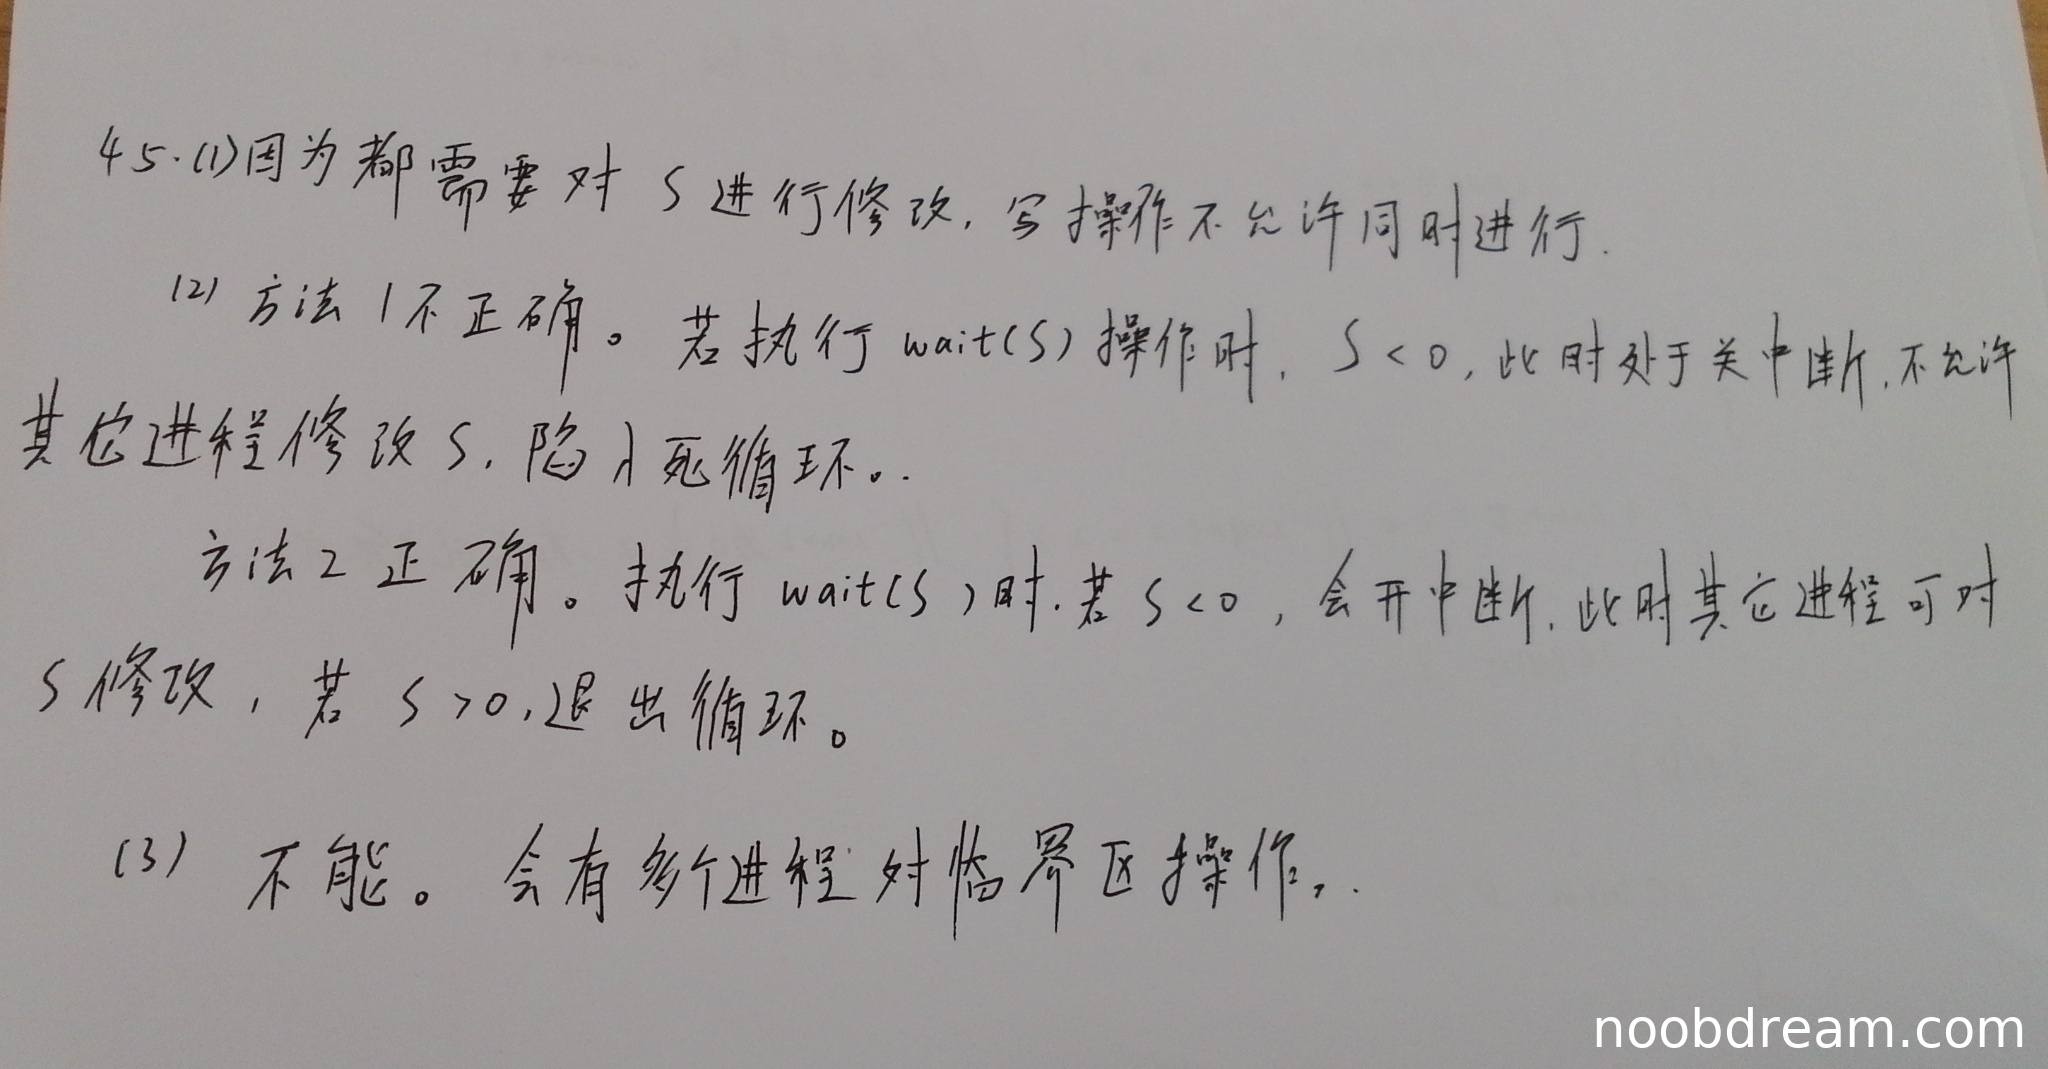 45.(1)因为都需要对S进行修改,写操作不允许同时进行.
(2) 方法1不正确。若执行wait(S)操作时,S<0,此时处于关中断,不允许
其它进程修改S,陷入死循环。.
方法2正确。执行wait(S)时,若S<0,会开中断,此时其它进程可对
S修改,若S>0,退出循环。
(3) 不能。会有多个进程对临界区操作。.
noobdream.com